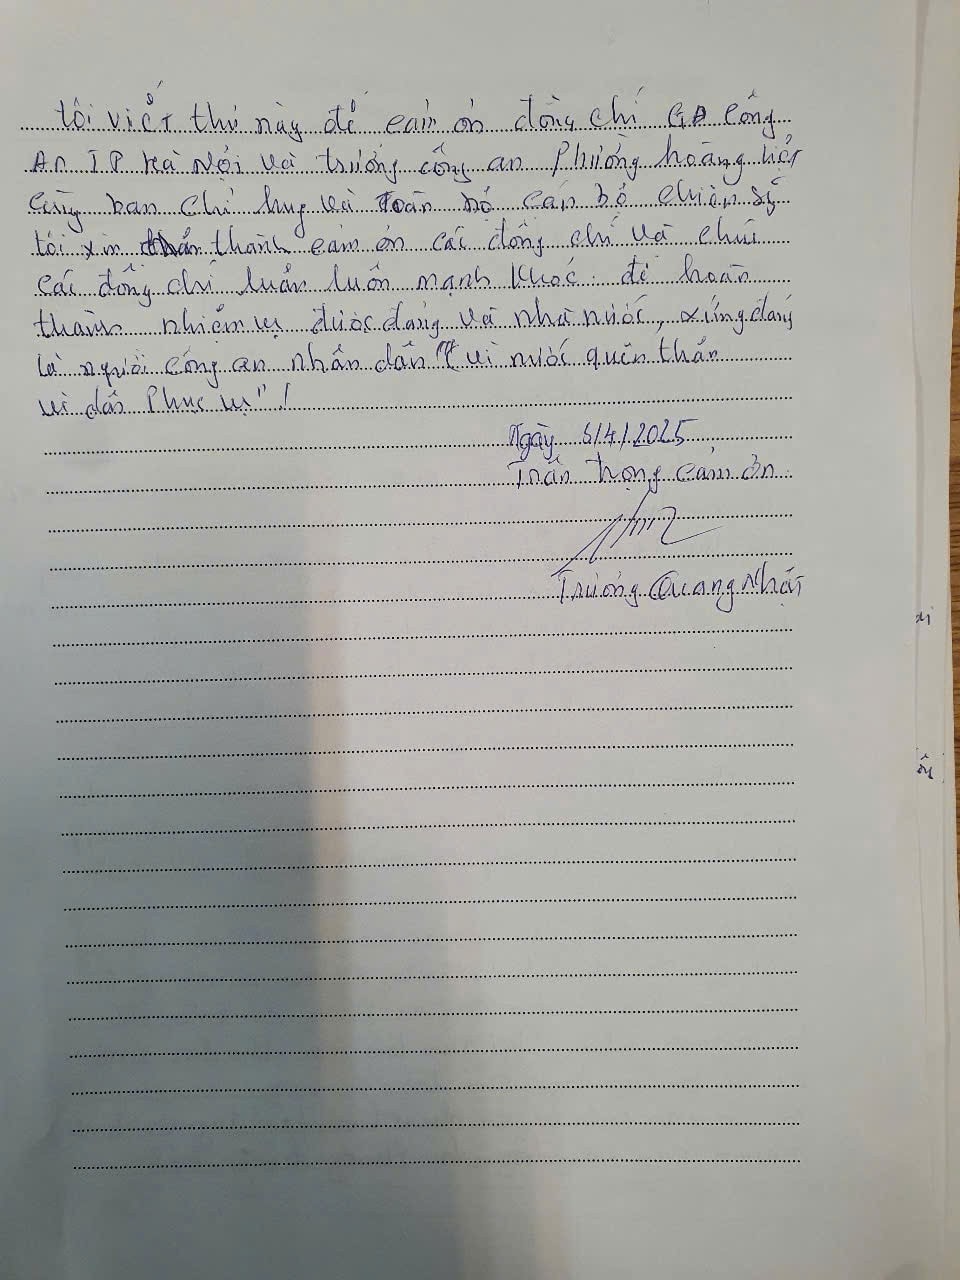 tôi viết thư này để cảm ơn đồng chí GĐ công
An TP Hà Nội và trưởng công an Phường hoàng liệt
cùng ban chỉ huy và toàn bộ cán bộ chiến sỹ
tôi xin chân thành cảm ơn các đồng chí và chúc
các đồng chí luôn luôn mạnh khoẻ. để hoàn
thành nhiệm vụ được đảng và nhà nước, xứng đáng
là người công an nhân dân "vì nước quên thân
vì dân Phục vụ"!
Ngày 5/4/2025
Trân trọng cảm ơn
Trương Quang Nhật